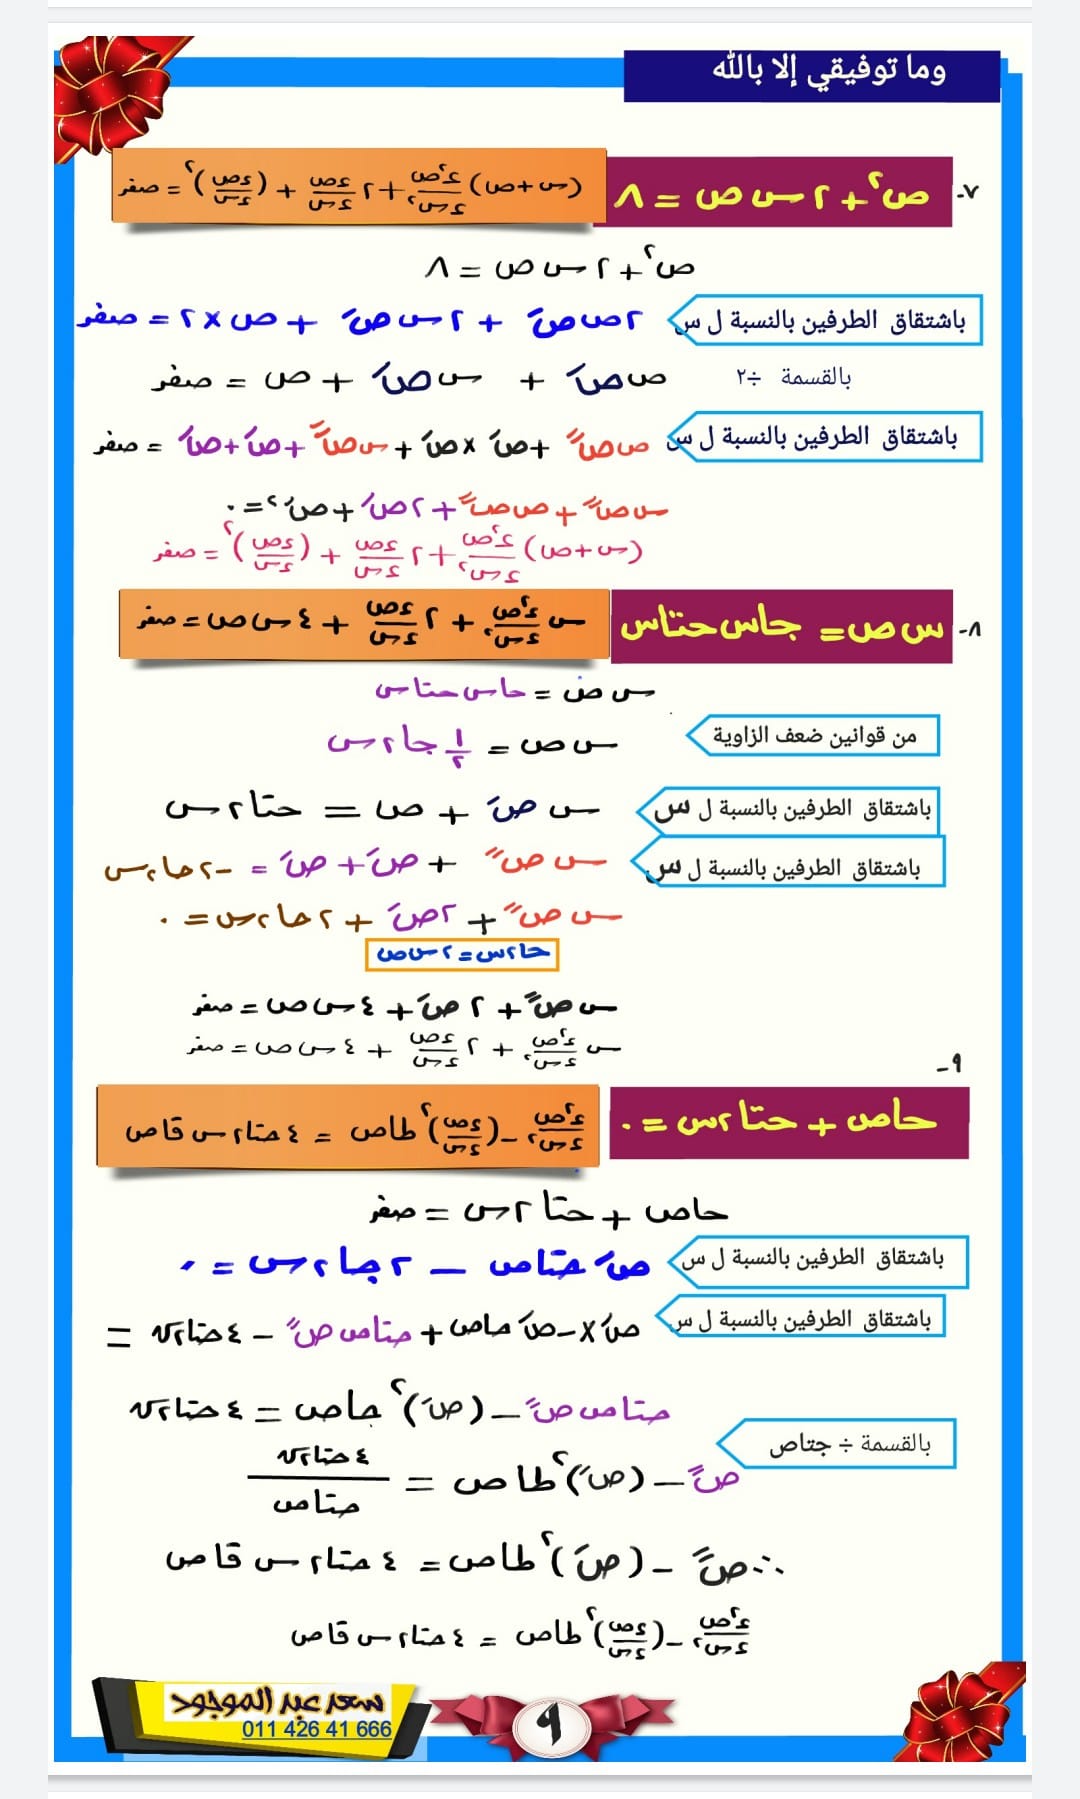 وما توفيقي إلا بالله
٧- ص² + ٢ س ص = ٨
(س + ص) ء²ص/ءس² + ٢ ءص/ءس + (ءص/ءس)² = صفر
ص² + ٢ س ص = ٨
باشتقاق الطرفين بالنسبة ل س
٢ ص صَ + ٢ س صَ + ص × ٢ = صفر
بالقسمة ÷٢
ص صَ + س صَ + ص = صفر
باشتقاق الطرفين بالنسبة ل س
ص صً + صَ × صَ + س صً + صَ + صَ = صفر
س صً + ص صً + ٢ صَ + صَ² = ٠
(س + ص) ء²ص/ءس² + ٢ ءص/ءس + (ءص/ءس)² = صفر
٨- س ص = جاس حتاس
س ء²ص/ءس² + ٢ ءص/ءس + ٤ س ص = صفر
س ص = حاس حتاس
من قوانين ضعف الزاوية
س ص = ١/٢ جا ٢ س
باشتقاق الطرفين بالنسبة ل س
س صَ + ص = حتا ٢ س
باشتقاق الطرفين بالنسبة ل س
س صً + صَ + صَ = -٢ حا ٢ س
س صً + ٢ صَ + ٢ حا ٢ س = ٠
حا ٢ س = ٢ س ص
س صً + ٢ صَ + ٤ س ص = صفر
س ء²ص/ءس² + ٢ ءص/ءس + ٤ س ص = صفر
٩-
حاص + حتا ٢ س = ٠
ء²ص/ءس² - (ءص/ءس)² طاص = ٤ حتا ٢ س قاص
حاص + حتا ٢ س = صفر
باشتقاق الطرفين بالنسبة ل س
صَ حتاص - ٢ جا ٢ س = ٠
باشتقاق الطرفين بالنسبة ل س
صَ × - صَ حاص + حتاص صً - ٤ حتا ٢ س =
حتاص صً - (صَ)² جاص = ٤ حتا ٢ س
بالقسمة ÷ جتاص
صً - (صَ)² طاص = ٤ حتا ٢ س/حتاص
∴ صً - (صَ)² طاص = ٤ حتا ٢ س قاص
ء²ص/ءس² - (ءص/ءس)² طاص = ٤ حتا ٢ س قاص
سعد عبد الموجود
011 426 41 666
٩